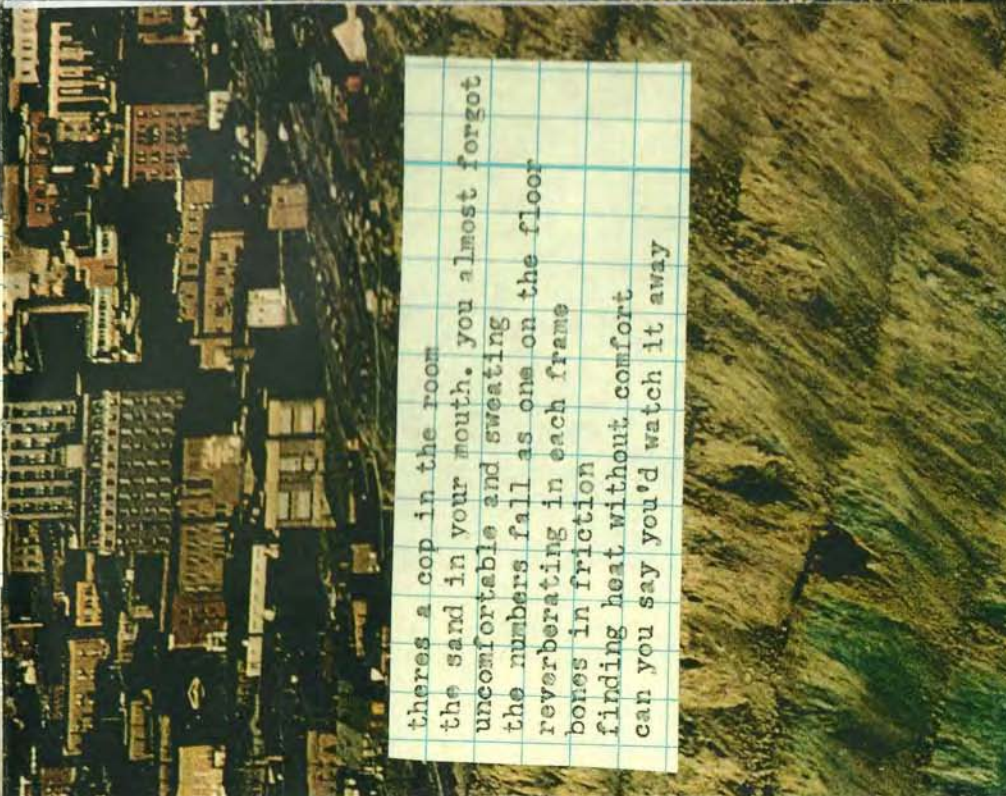 theres a cop in the room
the sand in your mouth. you almost forgot
uncomfortable and sweating
the numbers fall as one on the floor
reverberating in each frame
bones in friction
finding heat without comfort
can you say you'd watch it away